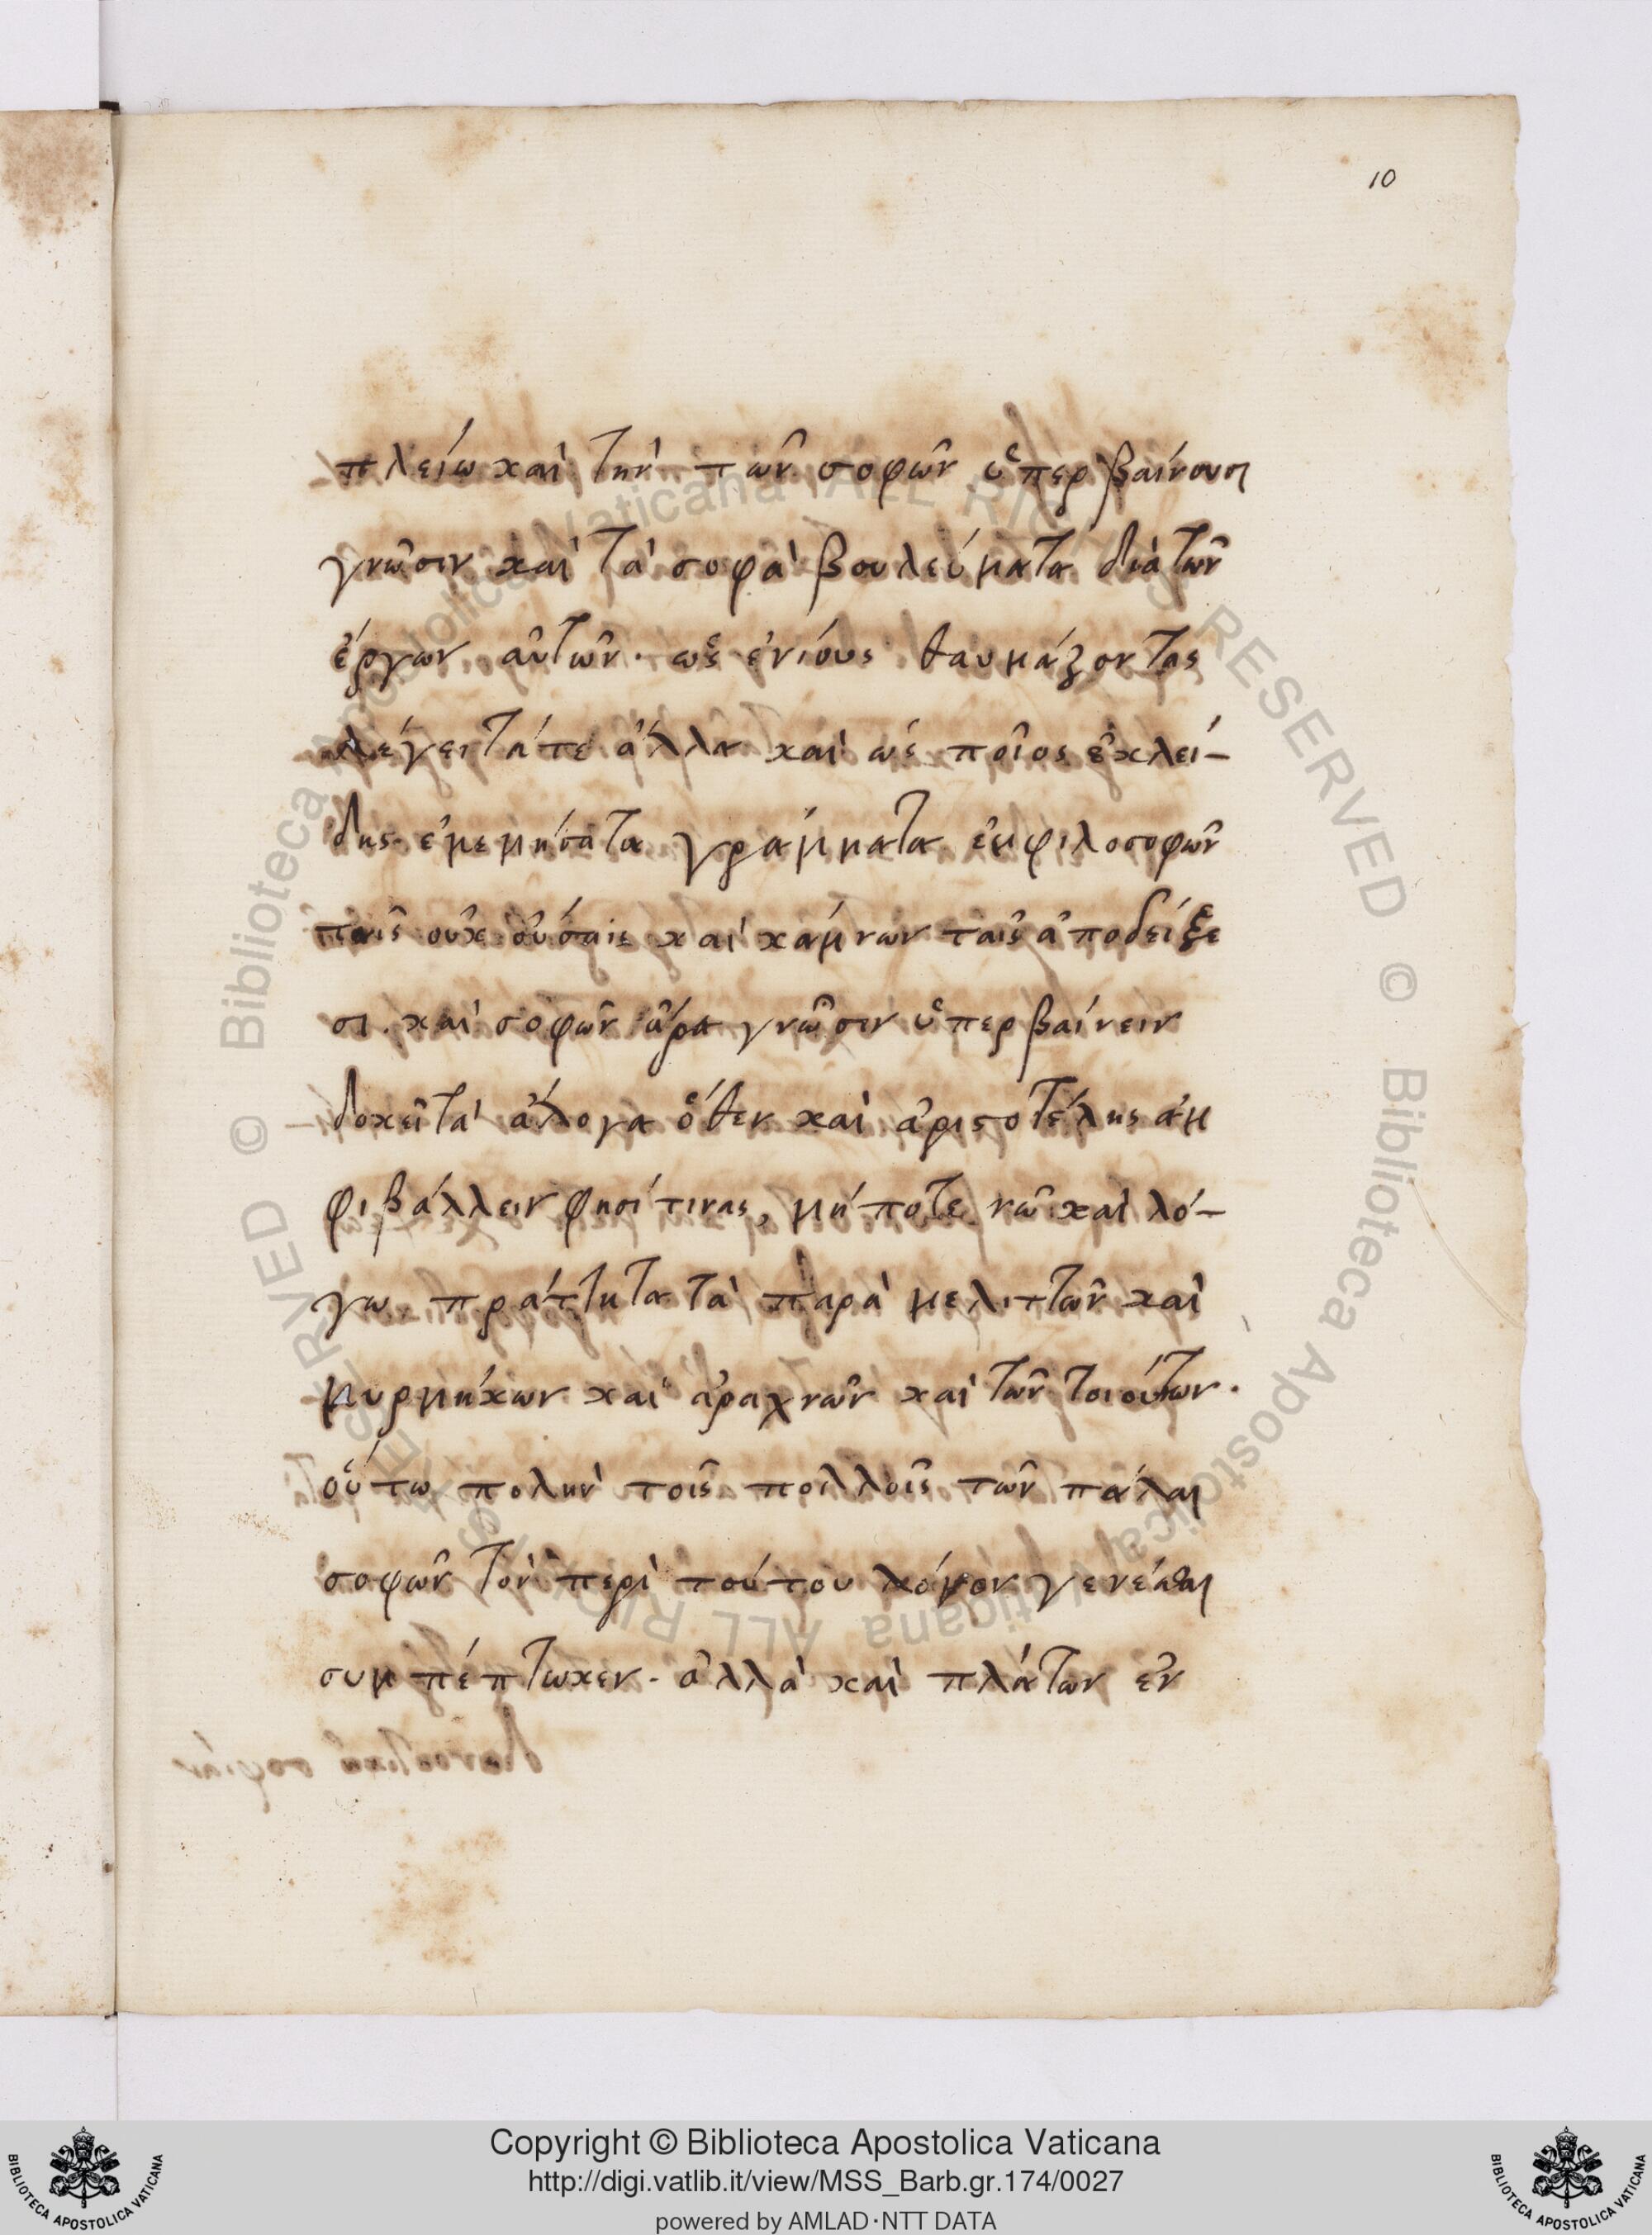 10
πλείω καὶ τὴν τῶν σοφῶν ὑπερβαίνουσι
γνῶσιν καὶ τὰ σοφὰ βουλεύματα διὰ τῶν
ἔργων αὐτῶν· ὡς ἐνίους θαυμάζοντας
λέγειν τά τε ἄλλα καὶ ὡς ποῖος εὐκλεί-
δης ἐμεμήσατα γράμματα ἐμφιλοσοφῶν
ταῖς οὐκ οὔσαις καὶ κάμνων ταῖς ἀποδείξε
σι. καὶ σοφῶν ἄρα γνῶσιν ὑπερβαίνειν
δοκεῖ τὰ ἄλογα ὅθεν καὶ ἀριστοτέλης ἀμ
φιβάλλειν φησί τινας, μήποτε νῶ καὶ λό-
γω πράττηται τὰ παρὰ μελιττῶν καὶ
μυρμήκων καὶ ἀραχνῶν καὶ τῶν τοιούτων.
οὕτω πολὴν τοῖς πολλοῖς τῶν πάλαι
σοφῶν τὸν περὶ τούτου λόγον γενέσθαι
συμπέπτωκεν. ἀλλὰ καὶ πλάτων ἐν
© Biblioteca Apostolica Vaticana ALL RIGHTS RESERVED © Biblioteca Apostolica Vaticana ALL RIGHTS RESERVED
BIBLIOTECA APOSTOLICA VATICANA
Copyright © Biblioteca Apostolica Vaticana
http://digi.vatlib.it/view/MSS_Barb.gr.174/0027
powered by AMLAD·NTT DATA
BIBLIOTECA APOSTOLICA VATICANA